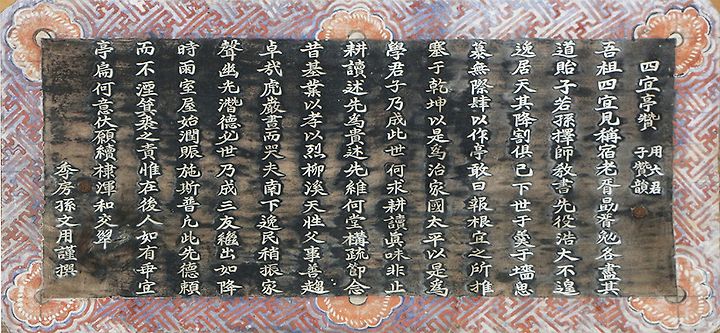 四宜亭贊 用大君子贊韻
吾祖四宜見稱宿老胥勗胥勉各盡其
道貽子若孫擇師敎書先役浩大不遑
逸居天其降割俱已下世于羹于墻思
慕無際肆以作亭敢曰報根宜之所推
塞于乾坤以是爲治家國太平以是爲
學君子乃成此世何求耕讀眞味非止
耕讀述先爲貴述先維何堂構疏節念
昔基業以孝以烈柳溪天性父事善趨
卓哉虎巖晝而哭夫南下逸民稍振家
聲幽先潛德必世乃成三友繼出如降
時雨室屋始潤賑施斯普凡此先德賴
而不湮賛奭之責惟在後人如有毋宜
亭扁何意伏願續棣渾和交翠
季房孫文用謹撰